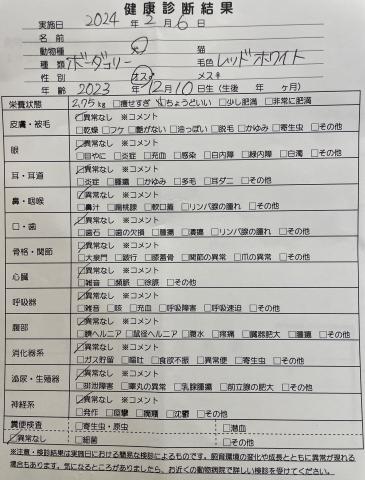 健康診断結果
実施日 2024年2月6日
名前
動物種 犬 猫
種類 ボーダコリー 毛色 レッドホワイト
性別 オス♂ メス♀
年齢 2023年12月10日生(生後 年 ヶ月)
栄養状態 2.75kg □痩せすぎ ☑ちょうどいい □少し肥満 □非常に肥満
皮膚・被毛 ☑異常なし ※コメント
□乾燥 □フケ □艶がない □油っぽい □脱毛 □かゆみ □寄生虫 □その他
眼 ☑異常なし ※コメント
□目やに □炎症 □充血 □感染 □白内障 □緑内障 □白濁 □その他
耳・耳道 ☑異常なし ※コメント
□炎症 □腫瘍 □かゆみ □多毛 □耳ダニ □その他
鼻・咽喉 ☑異常なし ※コメント
□鼻汁 □扁桃腺 □軟口蓋 □リンパ腺の腫れ □その他
口・歯 ☑異常なし ※コメント
□歯石 □歯の欠損 □腫瘍 □潰瘍 □リンパ腺の腫れ □その他
骨格・関節 ☑異常なし ※コメント
□大泉門 □跛行 □膝蓋骨 □関節の異常 □爪の異常 □その他
心臓 ☑異常なし ※コメント
□雑音 □頻脈 □徐脈 □その他
呼吸器 ☑異常なし ※コメント
□雑音 □咳 □充血 □呼吸障害 □呼吸速迫 □その他
腹部 ☑異常なし ※コメント
□臍ヘルニア □鼠径ヘルニア □腹水 □疼痛 □臓器肥大 □腫瘍 □その他
消化器系 ☑異常なし ※コメント
□ガス貯留 □嘔吐 □食欲不振 □異常便 □寄生虫 □その他
泌尿・生殖器 ☑異常なし ※コメント
□排泄障害 □睾丸の異常 □乳腺腫瘍 □前立腺の肥大 □その他
神経系 ☑異常なし ※コメント
□発作 □痙攣 □麻痺 □沈鬱 □その他
糞便検査 □寄生虫・原虫 □潜血
☑異常なし □細菌 □その他
※注意・検診結果は実施日における簡易な検診によるものです。飼育環境の変化や成長とともに異常が現れる
場合もあります。気になるところがありましたら、お近くの動物病院で詳しい検診を受けてください。